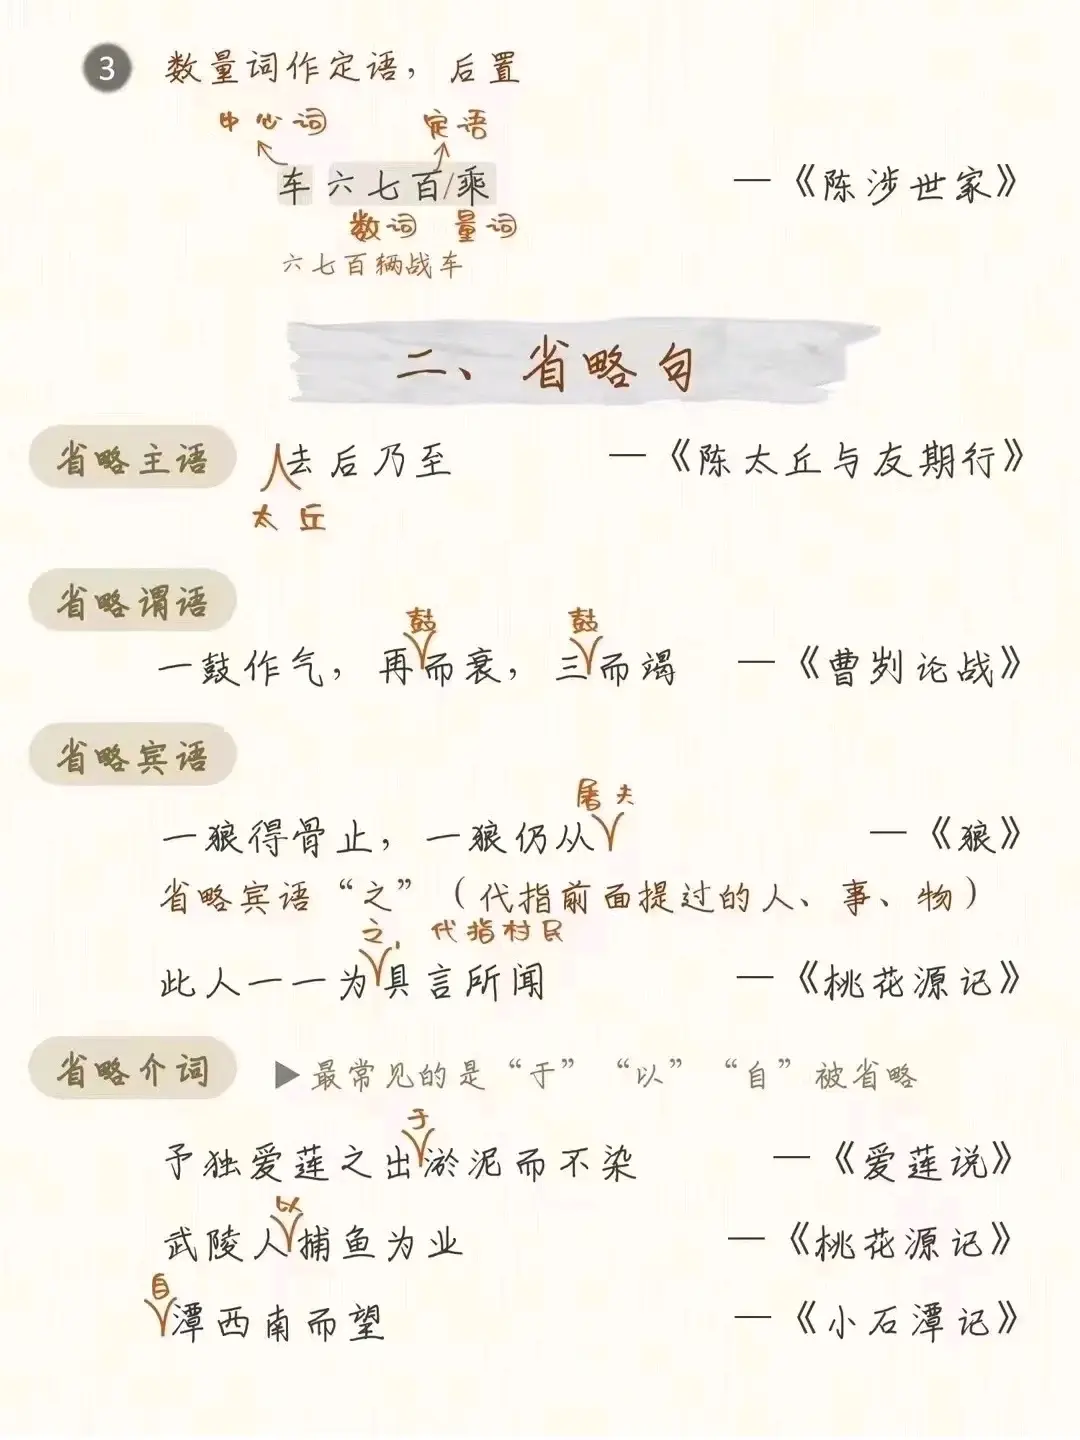 3 数量词作定语，后置
中心词 定语
车六七百/乘 —《陈涉世家》
数词 量词
六七百辆战车
二、省略句
省略主语 去后乃至 —《陈太丘与友期行》
太丘
省略谓语
鼓 鼓
一鼓作气，再而衰，三而竭 —《曹刿论战》
省略宾语
屠夫
一狼得骨止，一狼仍从 —《狼》
省略宾语“之”（代指前面提过的人、事、物）
之，代指村民
此人一一为具言所闻 —《桃花源记》
省略介词 ▶最常见的是“于”“以”“自”被省略
于
予独爱莲之出淤泥而不染 —《爱莲说》
以
武陵人捕鱼为业 —《桃花源记》
自
潭西南而望 —《小石潭记》